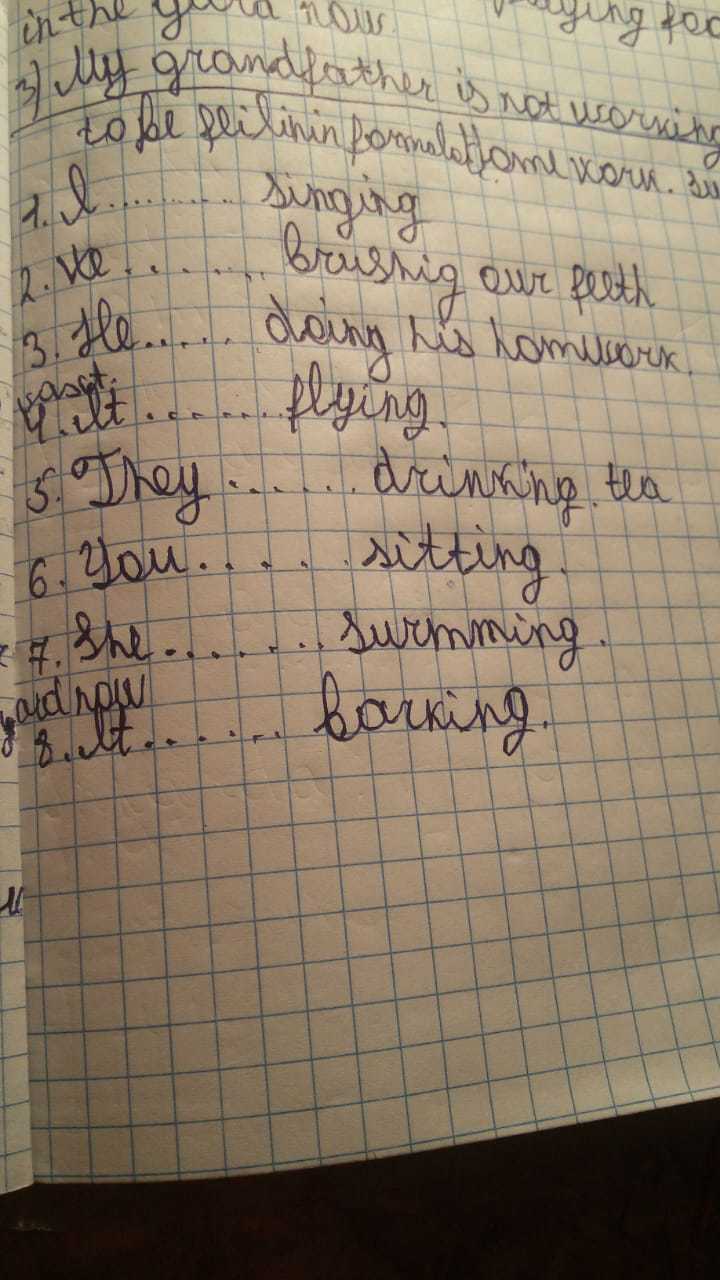 in the yard now. playing foo
3) My grandfather is not working
to be feilinin formalat Home work.
1. I........... singing
2. We........ brushig our feeth
3. He..... doing his homework.
4. It........ flying.
5. They...... drinking tea
6. You...... sitting.
7. She........ surmming.
yard now
8. It...... barking.